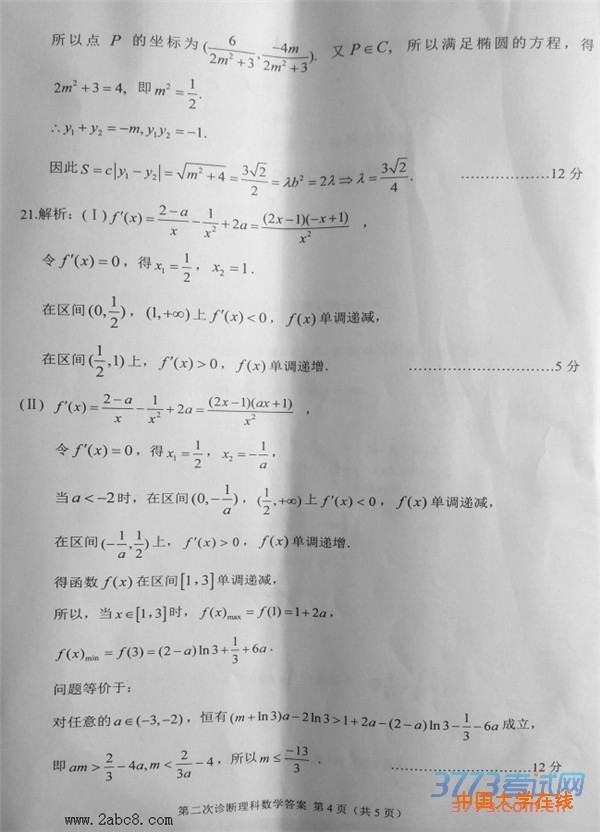 所以点 P 的坐标为 (6/(2m²+3), -4m/(2m²+3)). 又 P∈C, 所以满足椭圆的方程，得
2m²+3=4, 即 m²=1/2.
∴y₁+y₂=-m, y₁y₂=-1.
因此 S=c|y₁-y₂|=√(m²+4)=3√2/2=λb²=2λ⇒λ=3√2/4. ………………12 分
21.解析：(Ⅰ) f′(x)=(2-a)/x-1/x²+2a=(2x-1)(-x+1)/x² ，
令 f′(x)=0，得 x₁=1/2，x₂=1.
在区间(0,1/2)，(1,+∞)上 f′(x)<0，f(x)单调递减，
在区间(1/2,1)上，f′(x)>0，f(x)单调递增. ………………………5 分
(Ⅱ) f′(x)=(2-a)/x-1/x²+2a=(2x-1)(ax+1)/x² ，
令 f′(x)=0，得 x₁=1/2，x₂=-1/a，
当 a<-2 时，在区间(0,-1/a)，(1/2,+∞)上 f′(x)<0，f(x)单调递减，
在区间(-1/a,1/2)上，f′(x)>0，f(x)单调递增.
得函数 f(x)在区间[1,3]单调递减，
所以，当 x∈[1,3]时，f(x)max=f(1)=1+2a，
f(x)min=f(3)=(2-a)ln3+1/3+6a.
问题等价于：
对任意的 a∈(-3,-2)，恒有(m+ln3)a-2ln3>1+2a-(2-a)ln3-1/3-6a 成立，
即 am>2/3-4a, m<2/(3a)-4，所以 m≤-13/3 . ………………………12 分
3773考试网
第二次诊断理科数学答案 第 4 页（共 5 页）
中国大学在线
www.2abc8.com